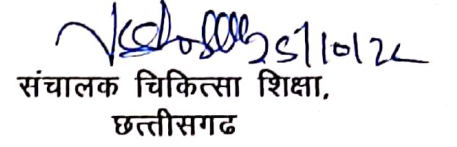 25/10/2
संचालक चिकित्सा शिक्षा,
छत्तीसगढ